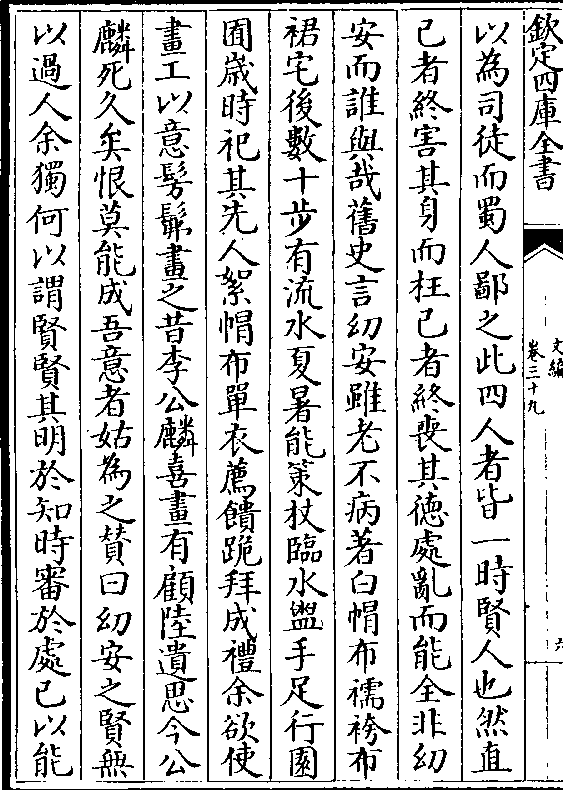 欽定四庫全書
文編
卷三十九
六
以為司徒而蜀人鄙之此四人者皆一時賢人也然直
己者終害其身而枉己者終喪其徳處亂而能全非幼
安而誰與哉舊史言幼安雖老不病著白帽布襦袴布
裙宅後數十步有流水夏暑能策杖臨水盥手足行園
囿嵗時祀其先人絮帽布單衣薦饋跪拜成禮余欲使
畫工以意髣髴畫之昔李公麟喜畫有顧陸遺思今公
麟死久矣恨莫能成吾意者姑為之賛曰幼安之賢無
以過人余獨何以謂賢賢其明於知時審於處己以能